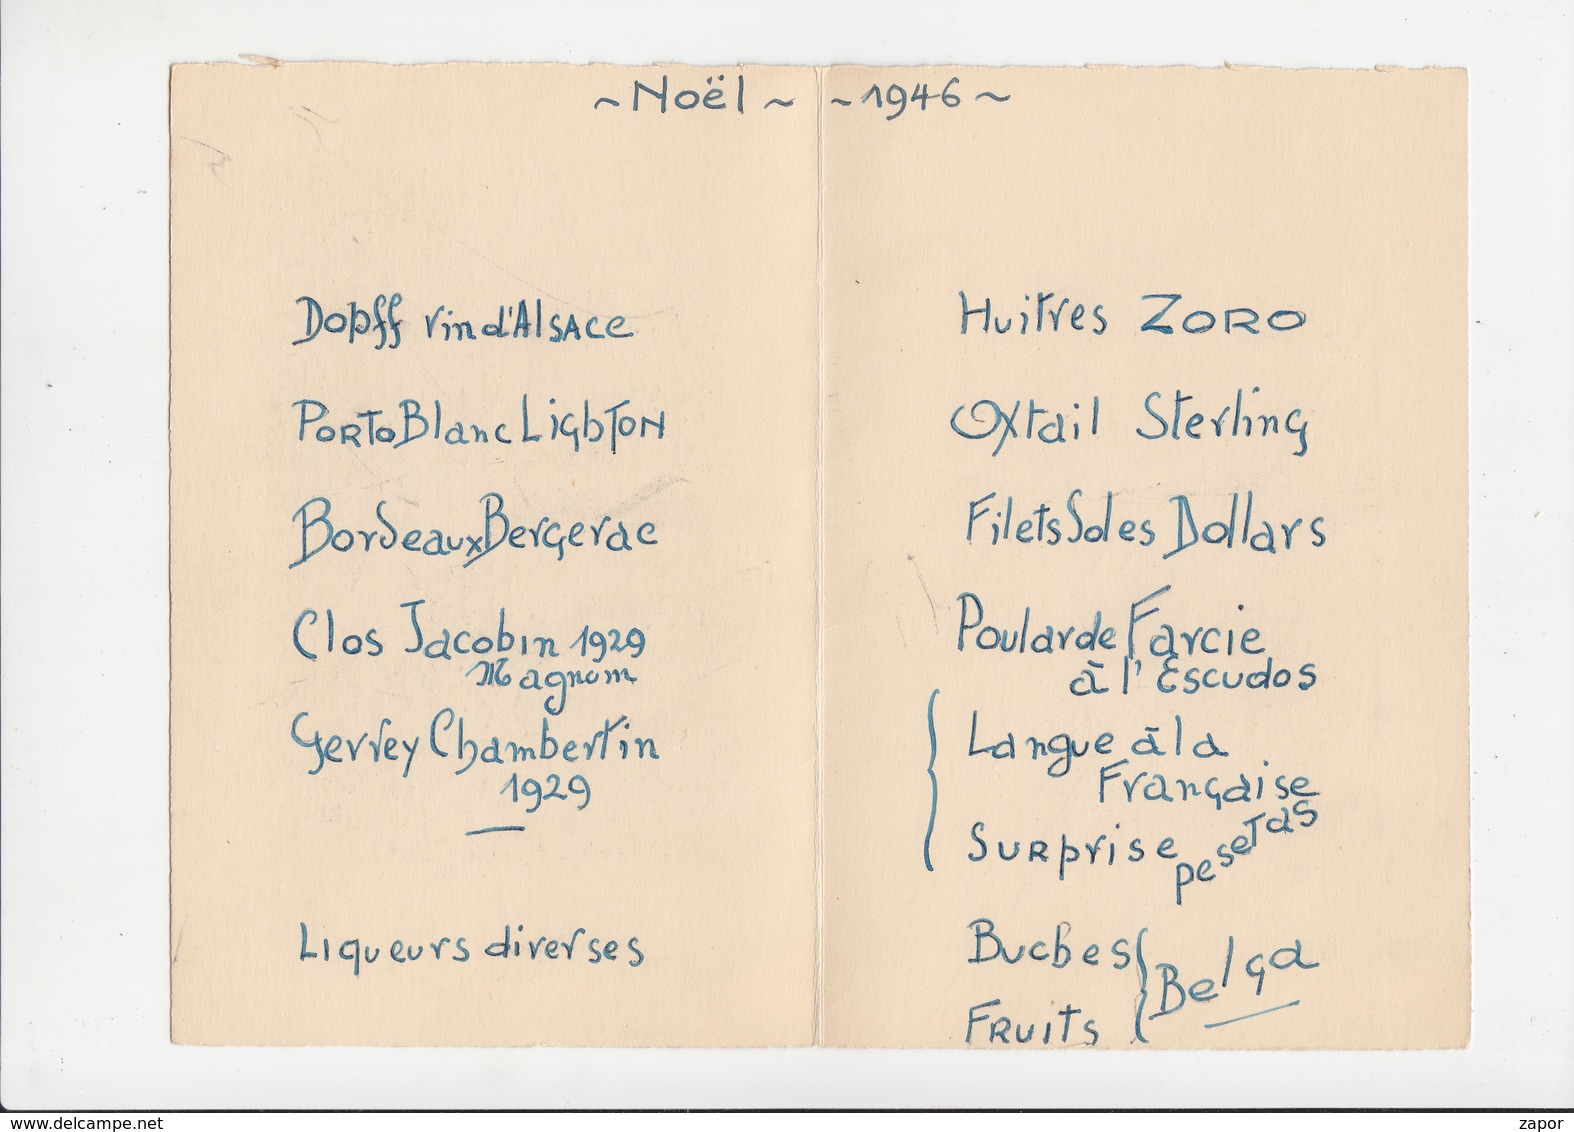 ~ Noël ~ ~ 1946 ~
Dopff vin d'Alsace
Porto Blanc Lighton
Bordeaux Bergerac
Clos Jacobin 1929
Magnum
Gevrey Chambertin
1929
Liqueurs diverses
Huitres ZORO
Oxtail Sterling
Filets Soles Dollars
Poularde Farcie
à l'Escudos
Langue à la
Française
Surprise pesetas
Buches
Fruits
Belga
www.delcampe.net
zapor